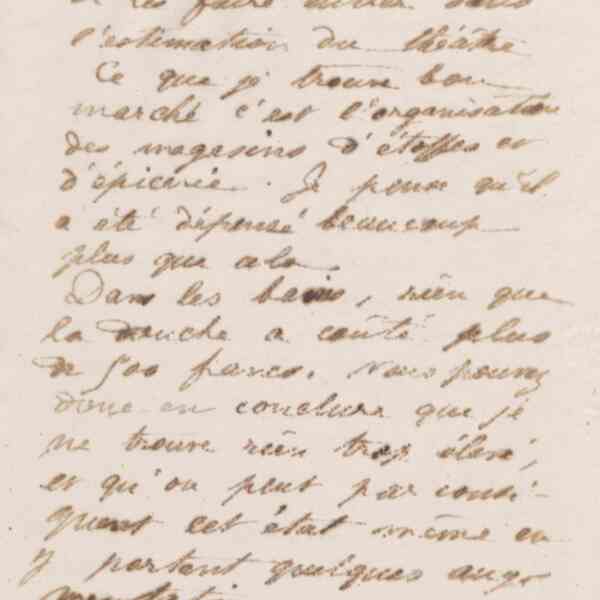 les faire entrer dans
l'estimation du théâtre
Ce que je trouve bon
marché c'est l'organisation
des magasins d'étoffes et
d'épicerie. Je pense qu'il
a été dépensé beaucoup
plus que cela.
Dans les bains, rien que
la douche a coûté plus
de 500 francs. Vous pouvez
donc en conclure que je
ne trouve rien trop élevé,
et qu'on peut par consé-
quent cet état même en
y portant quelques aug-
mentations